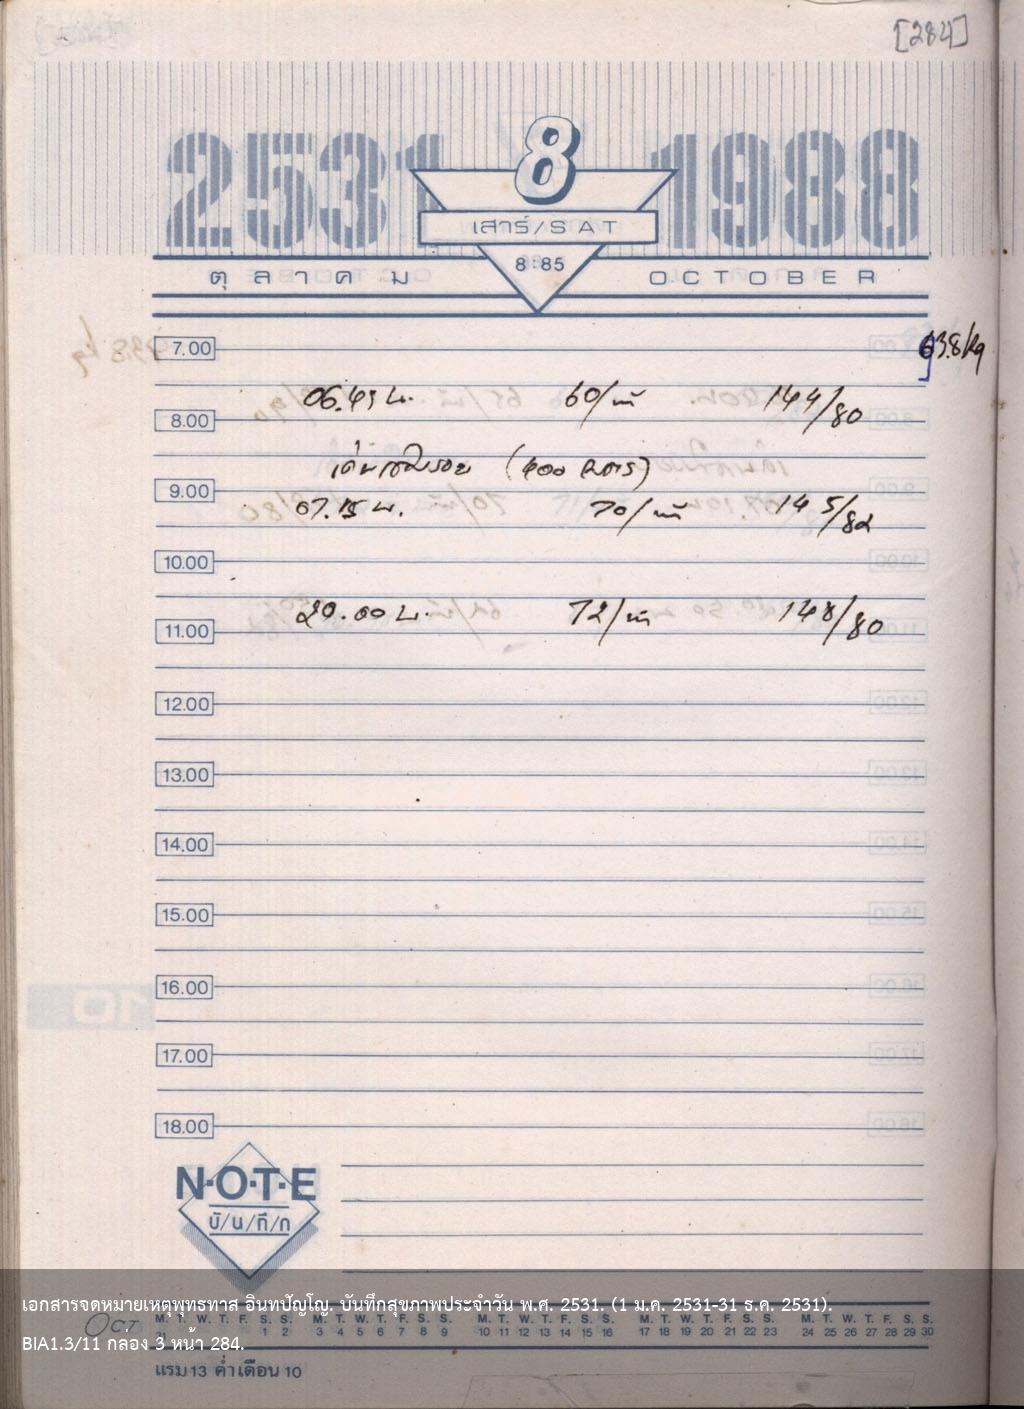 [284]
2531 8 1988
เสาร์/SAT
8:85
ตุลาคม OCTOBER
7.00 63.8 kg
06.45 น. 60/นาที 144/80
8.00
(400 เมตร)
9.00
07.15 น. 70/นาที 145/82
10.00
20.00 น. 72/นาที 148/80
11.00
12.00
13.00
14.00
15.00
16.00
17.00
18.00
N·O·T·E
บั/น/ทึ/ก
เอกสารจดหมายเหตุพุทธทาส อินทปัญโญ. บันทึกสุขภาพประจำวัน พ.ศ. 2531. (1 ม.ค. 2531-31 ธ.ค. 2531).
OCT. M. T. W. T. F. S. S. M. T. W. T. F. S. S. M. T. W. T. F. S. S. M. T. W. T. F. S. S. M. T. W. T. F. S. S.
31 1 2 3 4 5 6 7 8 9 10 11 12 13 14 15 16 17 18 19 20 21 22 23 24 25 26 27 28 29 30
BIA1.3/11 กล่อง 3 หน้า 284.
แรม 13 ค่ำ เดือน 10